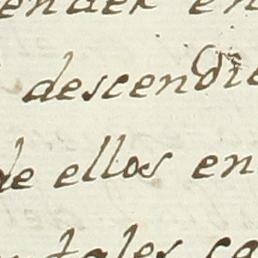 ender en
descendie
de ellos en
tales ca